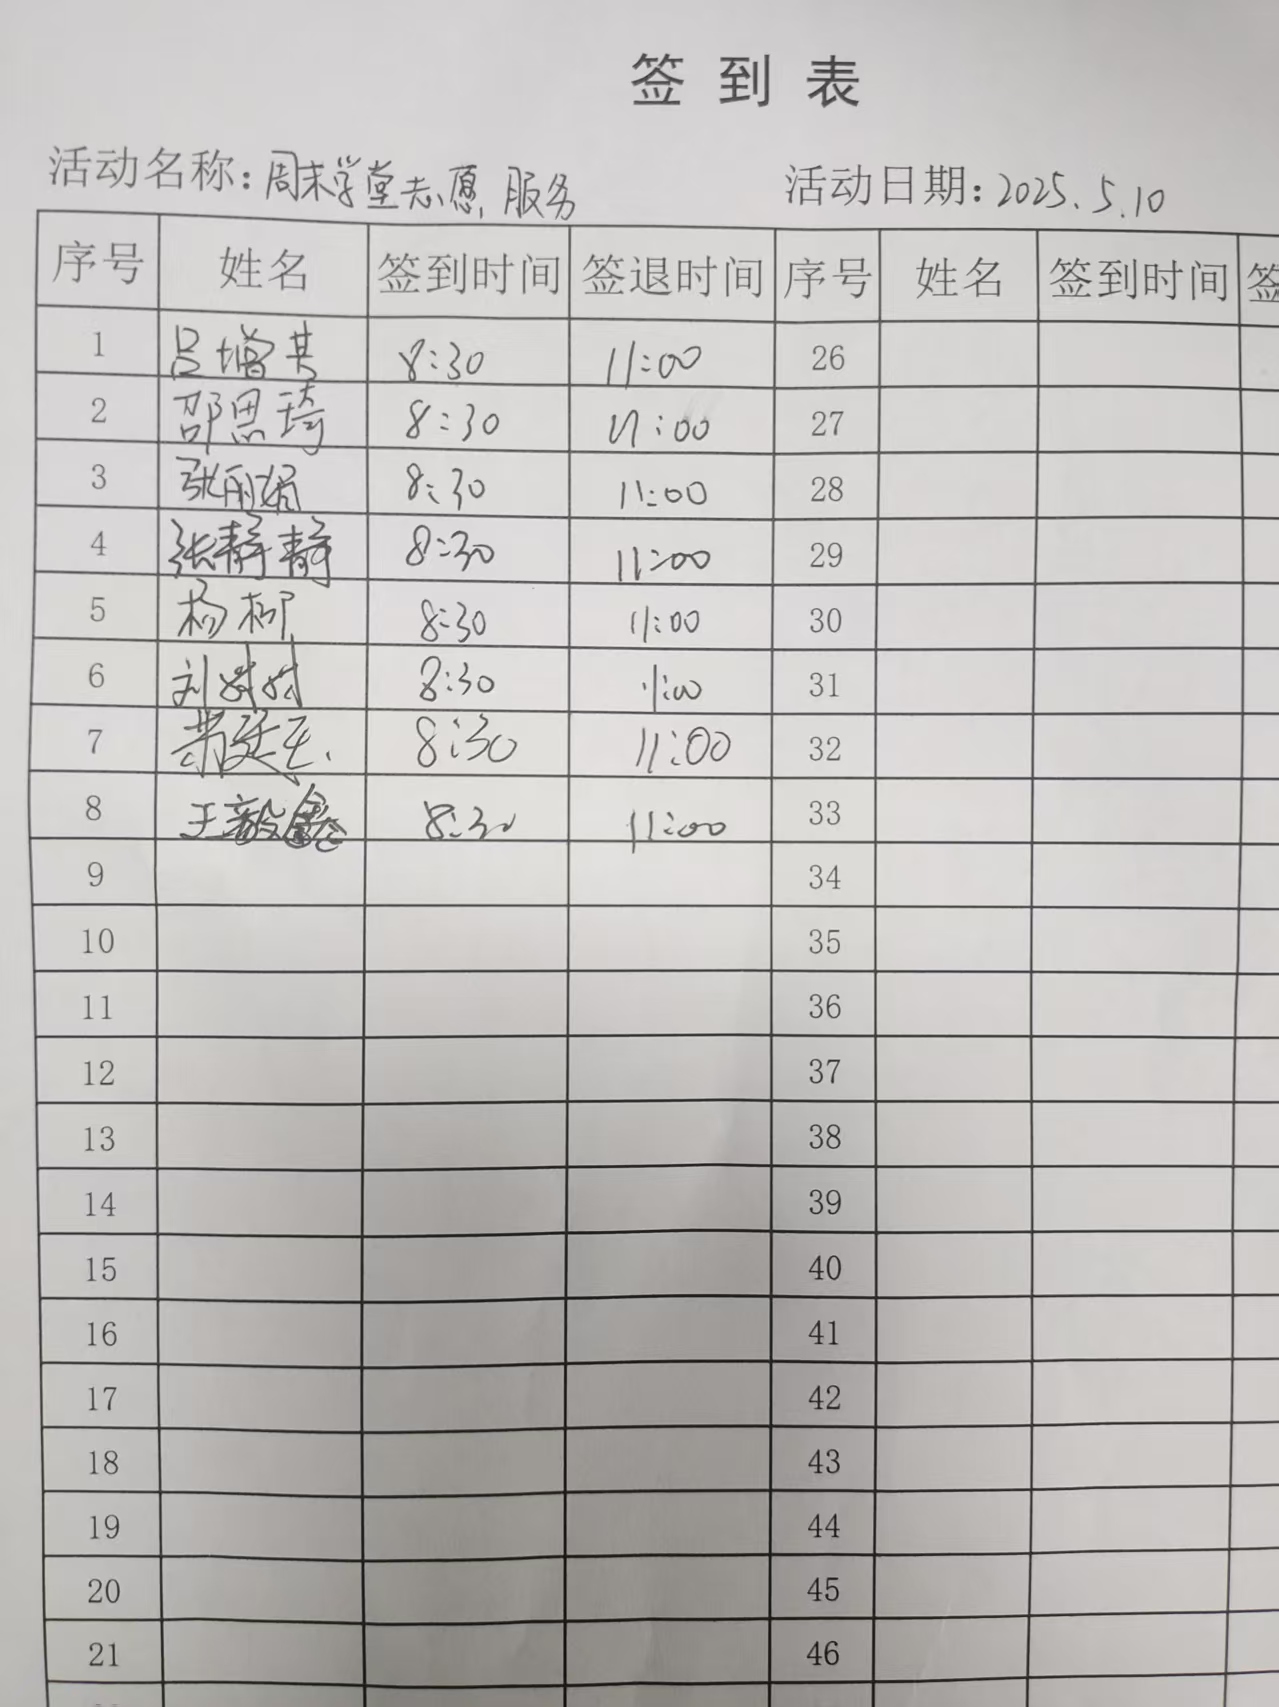 签到表
活动名称：周末学堂志愿服务 活动日期：2025.5.10
序号 姓名 签到时间 签退时间 序号 姓名 签到时间 签
1 吕增其 8:30 11:00 26
2 邵思琦 8:30 11:00 27
3 张丽娟 8:30 11:00 28
4 张静静 8:30 11:00 29
5 杨柳 8:30 11:00 30
6 刘婷婷 8:30 11:00 31
7 8:30 11:00 32
8 王毅鑫 8:30 11:00 33
9 34
10 35
11 36
12 37
13 38
14 39
15 40
16 41
17 42
18 43
19 44
20 45
21 46